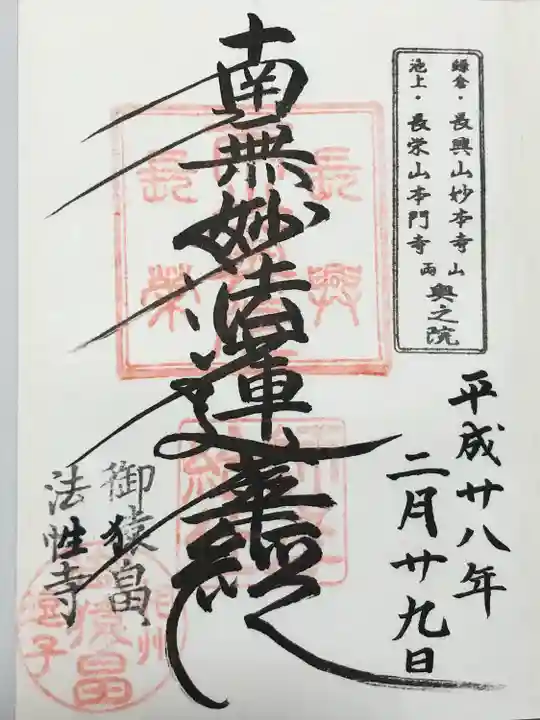 鎌倉・長興山妙本寺
池上・長栄山本門寺
両山奥之院
平成廿八年
二月廿九日
南無妙法蓮華経
長興
長榮
御猿畠
法性寺
猿畠